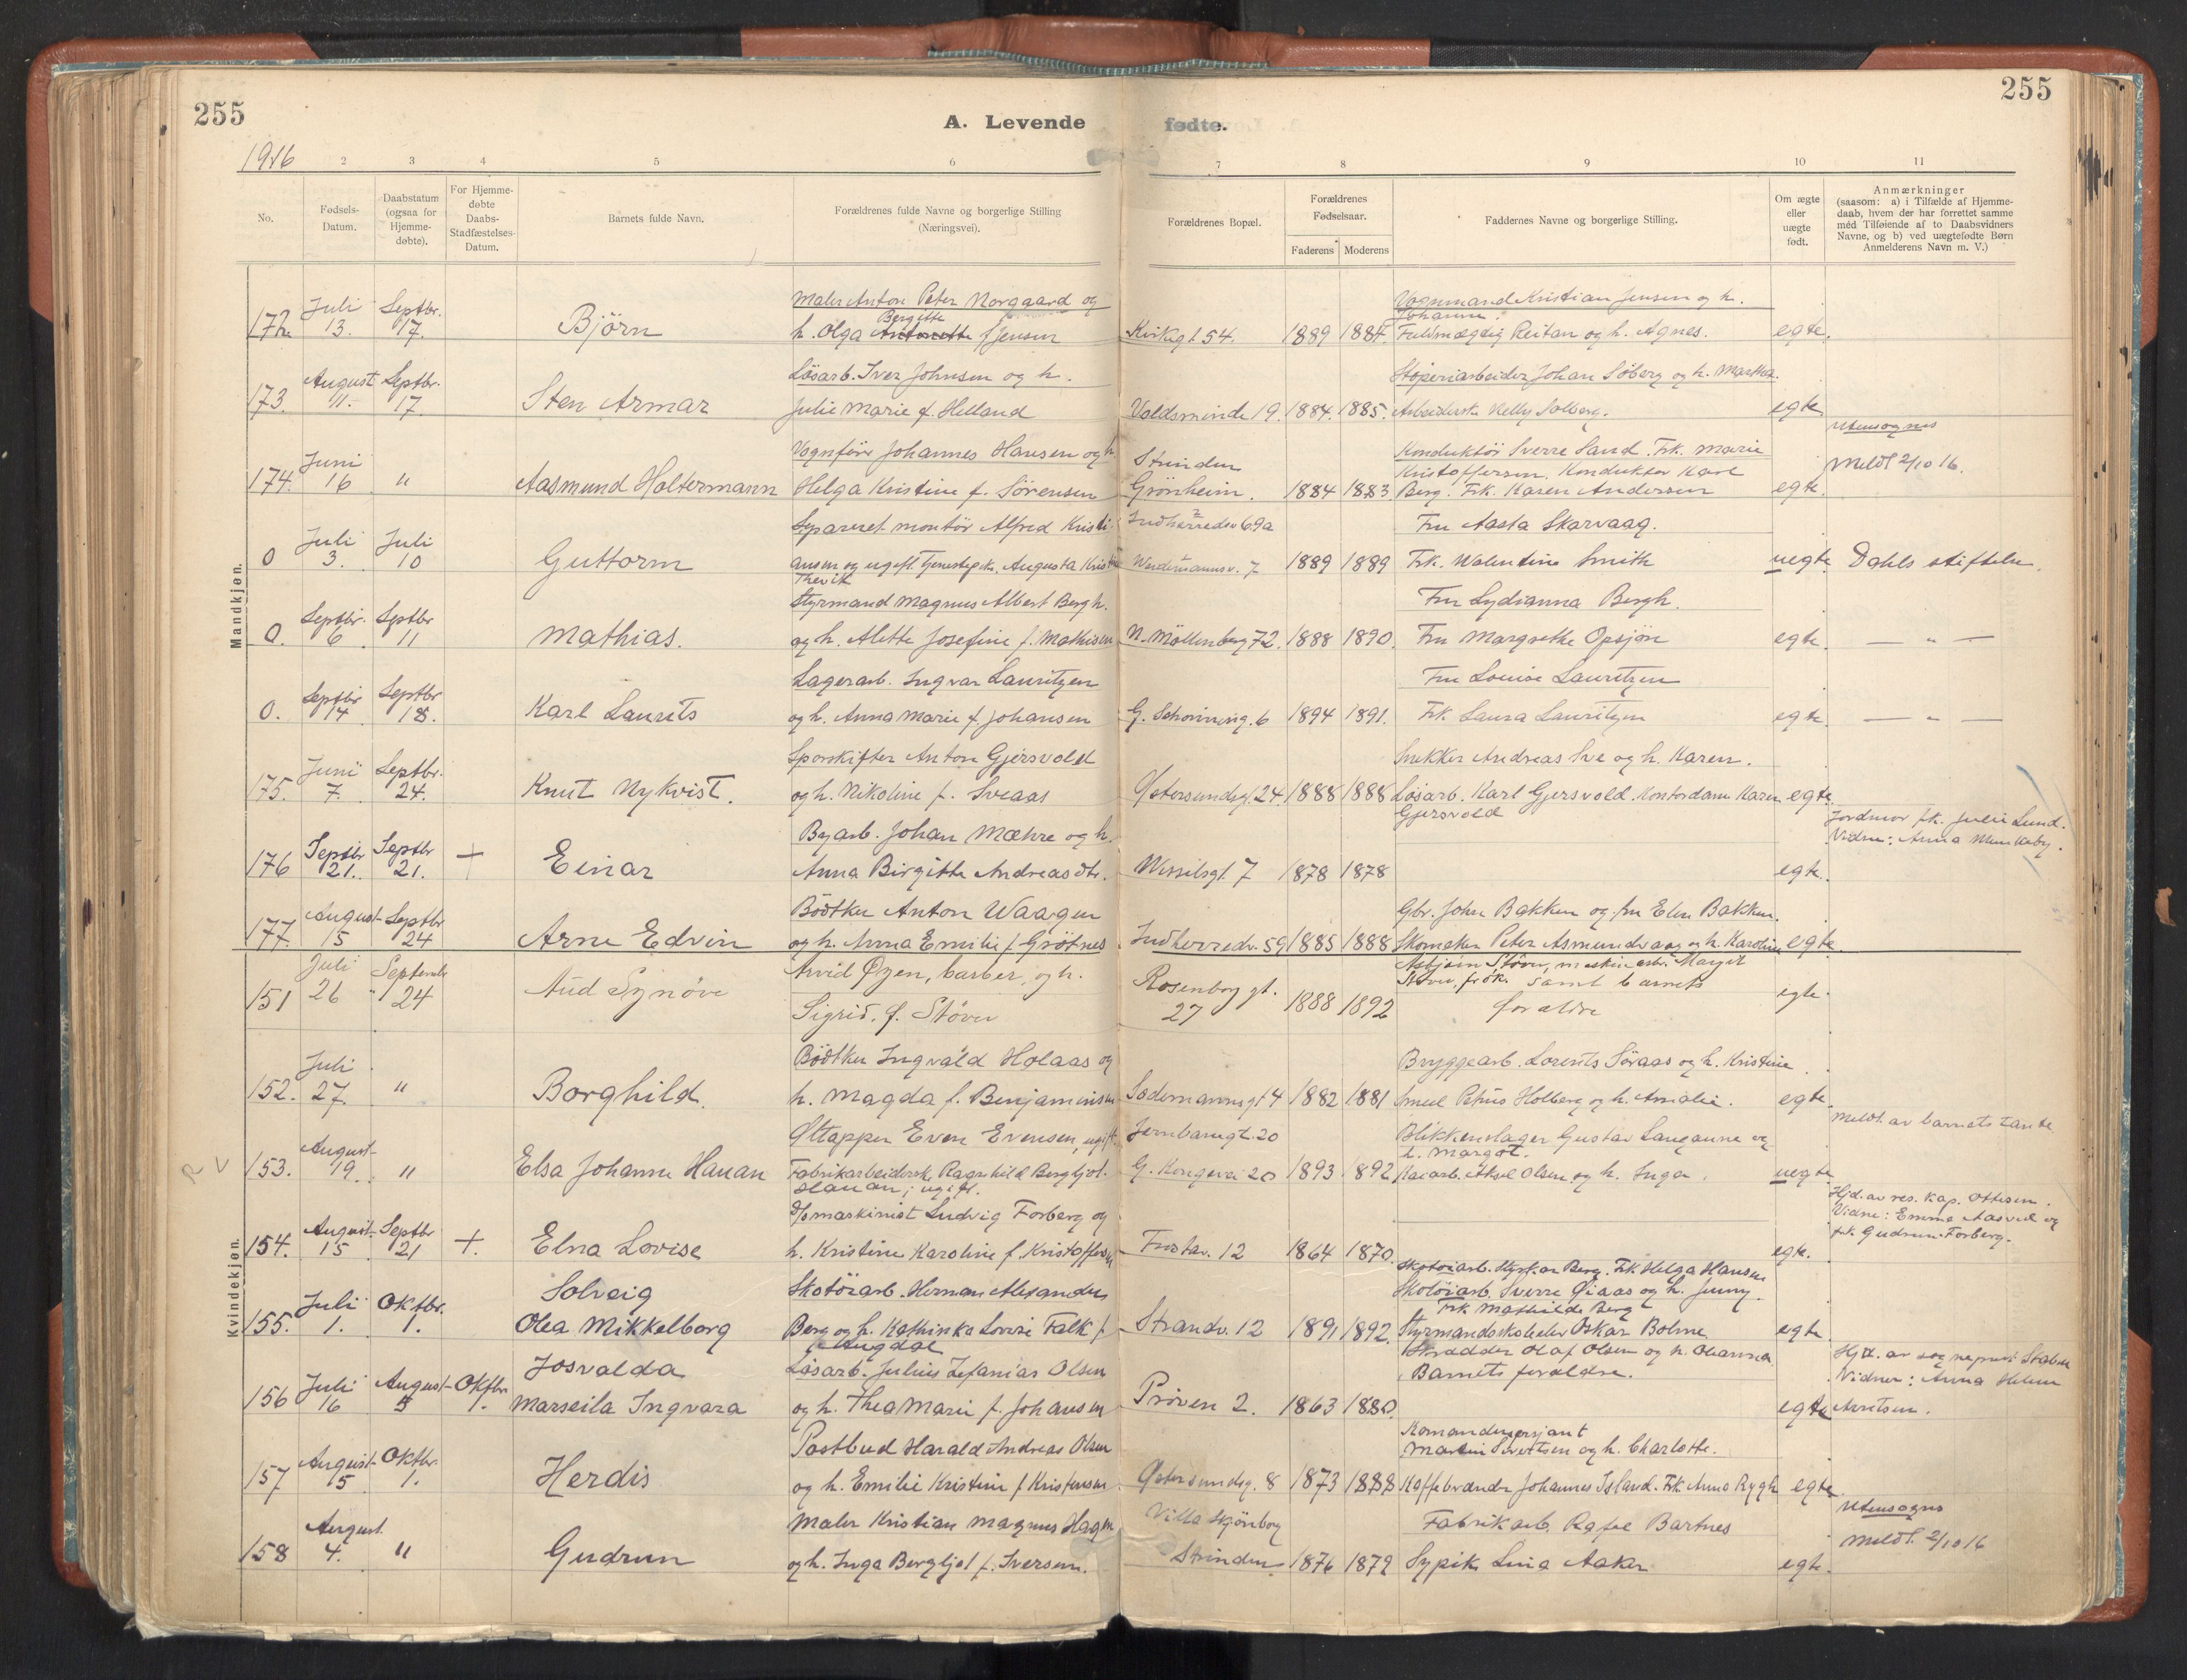 255
255
A. Levende fødte.
1916
2 3 4 5 6 7 8 9 10 11
No.
Fødsels-
Datum.
Daabstatum
(ogsaa for
Hjemme-
døbte).
For Hjemme-
døbte
Daabs-
Stadfæstelses-
Datum.
Barnets fulde Navn.
Forældrenes fulde Navne og borgerlige Stilling
(Næringsvei).
Forældrenes Bopæl.
Forældrenes
Fødselsaar.
Faderens Moderens
Faddernes Navne og borgerlige Stilling.
Om ægte
eller
uægte
født.
Anmærkninger
(saasom: a) i Tilfælde af Hjemme-
daab, hvem der har forrettet samme
med Tilføiende af to Daabsvidners
Navne, og b) ved uægtefødte Børn
Anmelderens Navn m. V.)
Mandkjøn.
Juli Septbr. Maler Anton Peter Norgaard og Vognmand Kristian Jensen og h.
Bergitte Johanne.
172. 13. 17. Björn h. Olga Antonette f Jensen Kirkegt 54. 1889 1887. Fuldmægtig Reitan og h. Agnes. egte.
August Septbr. Løsarb. Iver Johnsen og h. Støperiarbeider Johan Söberg og h. Martha.
173. 11. 17. Sten Armar Julie Marie f. Helland Voldsminde 19. 1884. 1885. Arbeidersk. Nelly Solberg. egte.
Utensogns
Juni Vognfører Johannes Hansen og h. Strinden Konduktör Sverre Sand. Frk. Marie
Kristoffersen. Konduktør Karl Meldt 2/10 16.
174. 16 " Aasmund Holtermann Helga Kristine f. Sørensen Grönheim. 1884 1883. Berg. Frk. Karen Andersen egte.
Juli Juli Separeret montör Alfred Kristi- Indherredsv 69a Fru Aasta Skarvaag.
0 3. 10 Guttorm ansen og ugift Tjenestepik. Augusta Kristine Weidemannsv. 7 1889 1889 Frk. Valentine Smith uegte. Dahls stiftelse.
Thevik
Septbr. Septbr Styrmand Magnus Albert Bergh. Fru Lydianna Bergh.
0. 6 11 Mathias. og h. Alette Josefine f. Mathisen N. Möllenberg 72. 1888 1890. Fru Margrethe Opsjön egte. — " —
Septbr Septbr Lagerarb. Ingvar Lauritzen Fru Louise Lauritzen
0. 14 18. Karl Laurits og h. Anna Marie f. Johansen G. Schøninng. 6 1894 1891. Frk. Laura Lauritzen egte. — " —
Juni Septbr. Sporskifter Anton Gjersvold Snekker Andreas Sve og h. Karen.
175. 7. 24. Knut Nykvist. og h. Nikoline f. Sveaas Østersundsgt. 24. 1888 1888 Løsarb. Karl Gjersvold. Kontordame Karen egte.
Gjersvold
Jordmor frk. Julie Lund.
Septbr Septbr Byarb. Johan Mæhre og h. Vidne: Anna Munkeby.
176 21. 21. + Einar Anna Birgitte Andreasdtr. Wessilsgt. 7 1878 1878 egte.
August Septbr Bödtker Anton Waagen Gbr. John Bakken og fru Elen Bakken.
177. 15 24 Arne Edvin og h. Anna Emilie f Grötnes Indherredv. 59 1885 1888 Skomaker Peter Asmundvaag og h. Karoline egte.
Kvindekjøn.
Juli September Arvid Øzen, barber, og h. Rosenborg gt. Asbjörn Stöver, maskinarb. Margit
Stöver, frök. samt barnets
151 26 24 Aud Synöve Sigrid, f. Stöver 27 1888 1892 forældre egte.
Juli Bödtker Ingvald Holaas og Bryggearb. Lorents Søraas og h. Kristine.
152. 27. " Borghild. h. Magda f. Benjaminsen Sodemannsgt 4 1882 1881 Smed Petrus Holberg og h. Amalie. egte.
Meldt av barnets tante.
August Øltapper Even Evensen, ugift. Jernbanegt. 20 Blikkenslager Gustav Langaune og
h. Margot.
153. 19. " Elsa Johanne Hanan Fabrikarbeidersk. Ragnhild Bergljot. G. Kongevei 20 1893 1892 Kaiarb. Aksel Olsen og h. Inga. uegte
Hanan; ugift.
Hjd. av res. kap. Ottesen.
August Septbr D/smaskinist Ludvig Forberg og Vidne: Emma Aasved og
154. 15 21 +. Elna Lovise h. Kristine Karoline f Kristoffersen Frostav. 12 1864 1870. egte. frk. Gudrun Forberg.
Skotöiarb. Styrkar Berg. Frk Helga Hansen
Solveig Skotöiarb. Herman Alexander Skotöiarb. Sverre Øiaas og h. Jenny.
Juli Oktbr. Frk Mathilde Berg
155. 1. 1. Olea Mikkelborg Berg og h. Kathinka Lovise Falk f. Strandv. 12 1891 1892. Styrmandskoleelev Oskar Bolme. egte
Skrædder Olaf Olsen og h. Oleanna
Josvalda Løsarb. Julius Zefanias Olsen Barnets forældre. Hjd. av sogneprest Stabell
Juli August Oktbr. Vidner: Anna Helene
156 16 5 1. Marseila Ingvara og h. Thea Marie f. Johansen Pröven 2. 1863 1880. egte Arntsen.
Komandersersjant
August Oktbr. Postbud Harald Andreas Olsen Martin Sivertsen og h. Charlotte.
157 15 1. Herdis og h. Emilie Kristine f Kristensen Østersundsg. 8 1873 1888 Kaffebrænder Johannes Island. Frk Anna Rygh egte
Utensogns
August Maler Kristian Magnus Hagen Villa Skjönborg Fabrikarb. Rafael Bartnes Meldt. 2/10 16
158 4. " Gudrun og h. Inga Bergljot f. Iversen. Strinden 1876 1879 Sypik. Lina Aaker egte.